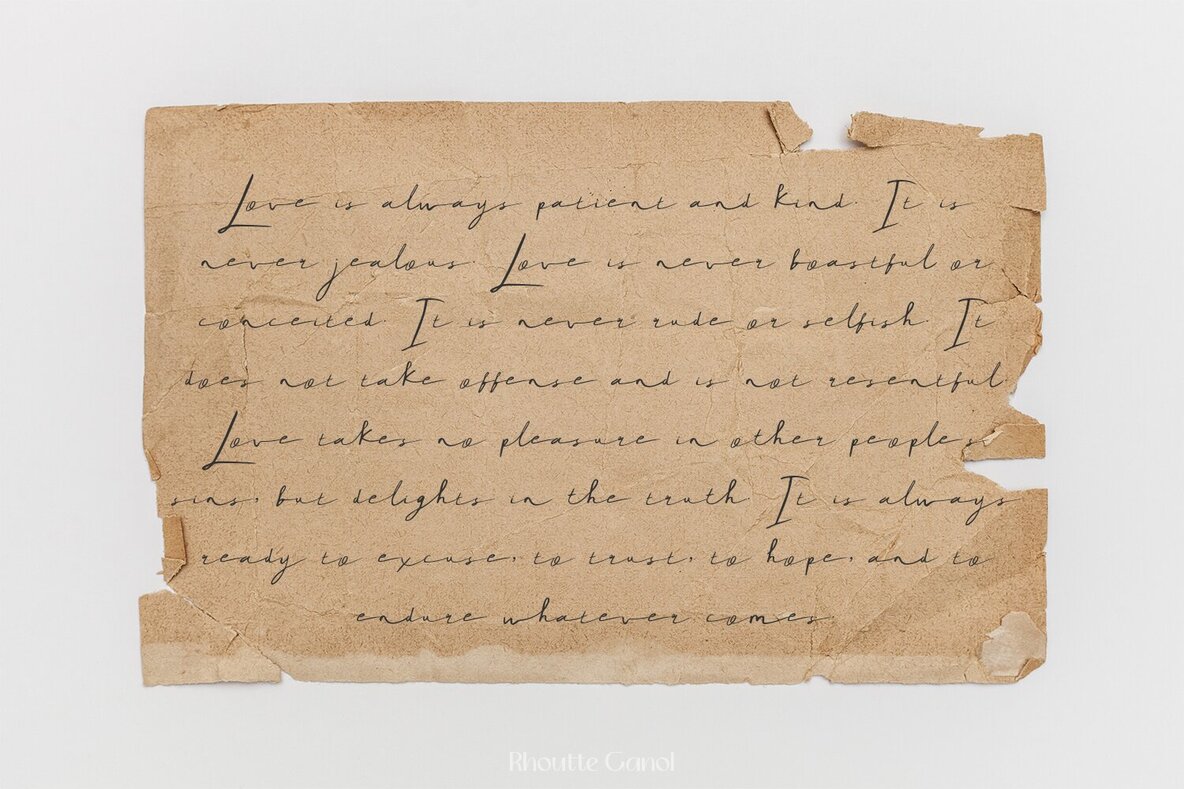 Love is always patient and kind. It is
never jealous. Love is never boastful or
conceited. It is never rude or selfish. It
does not take offense and is not resentful.
Love takes no pleasure in other peoples
sins, but delights in the truth. It is always
ready to excuse, to trust, to hope, and to
endure whatever comes.
Rhoutte Ganol